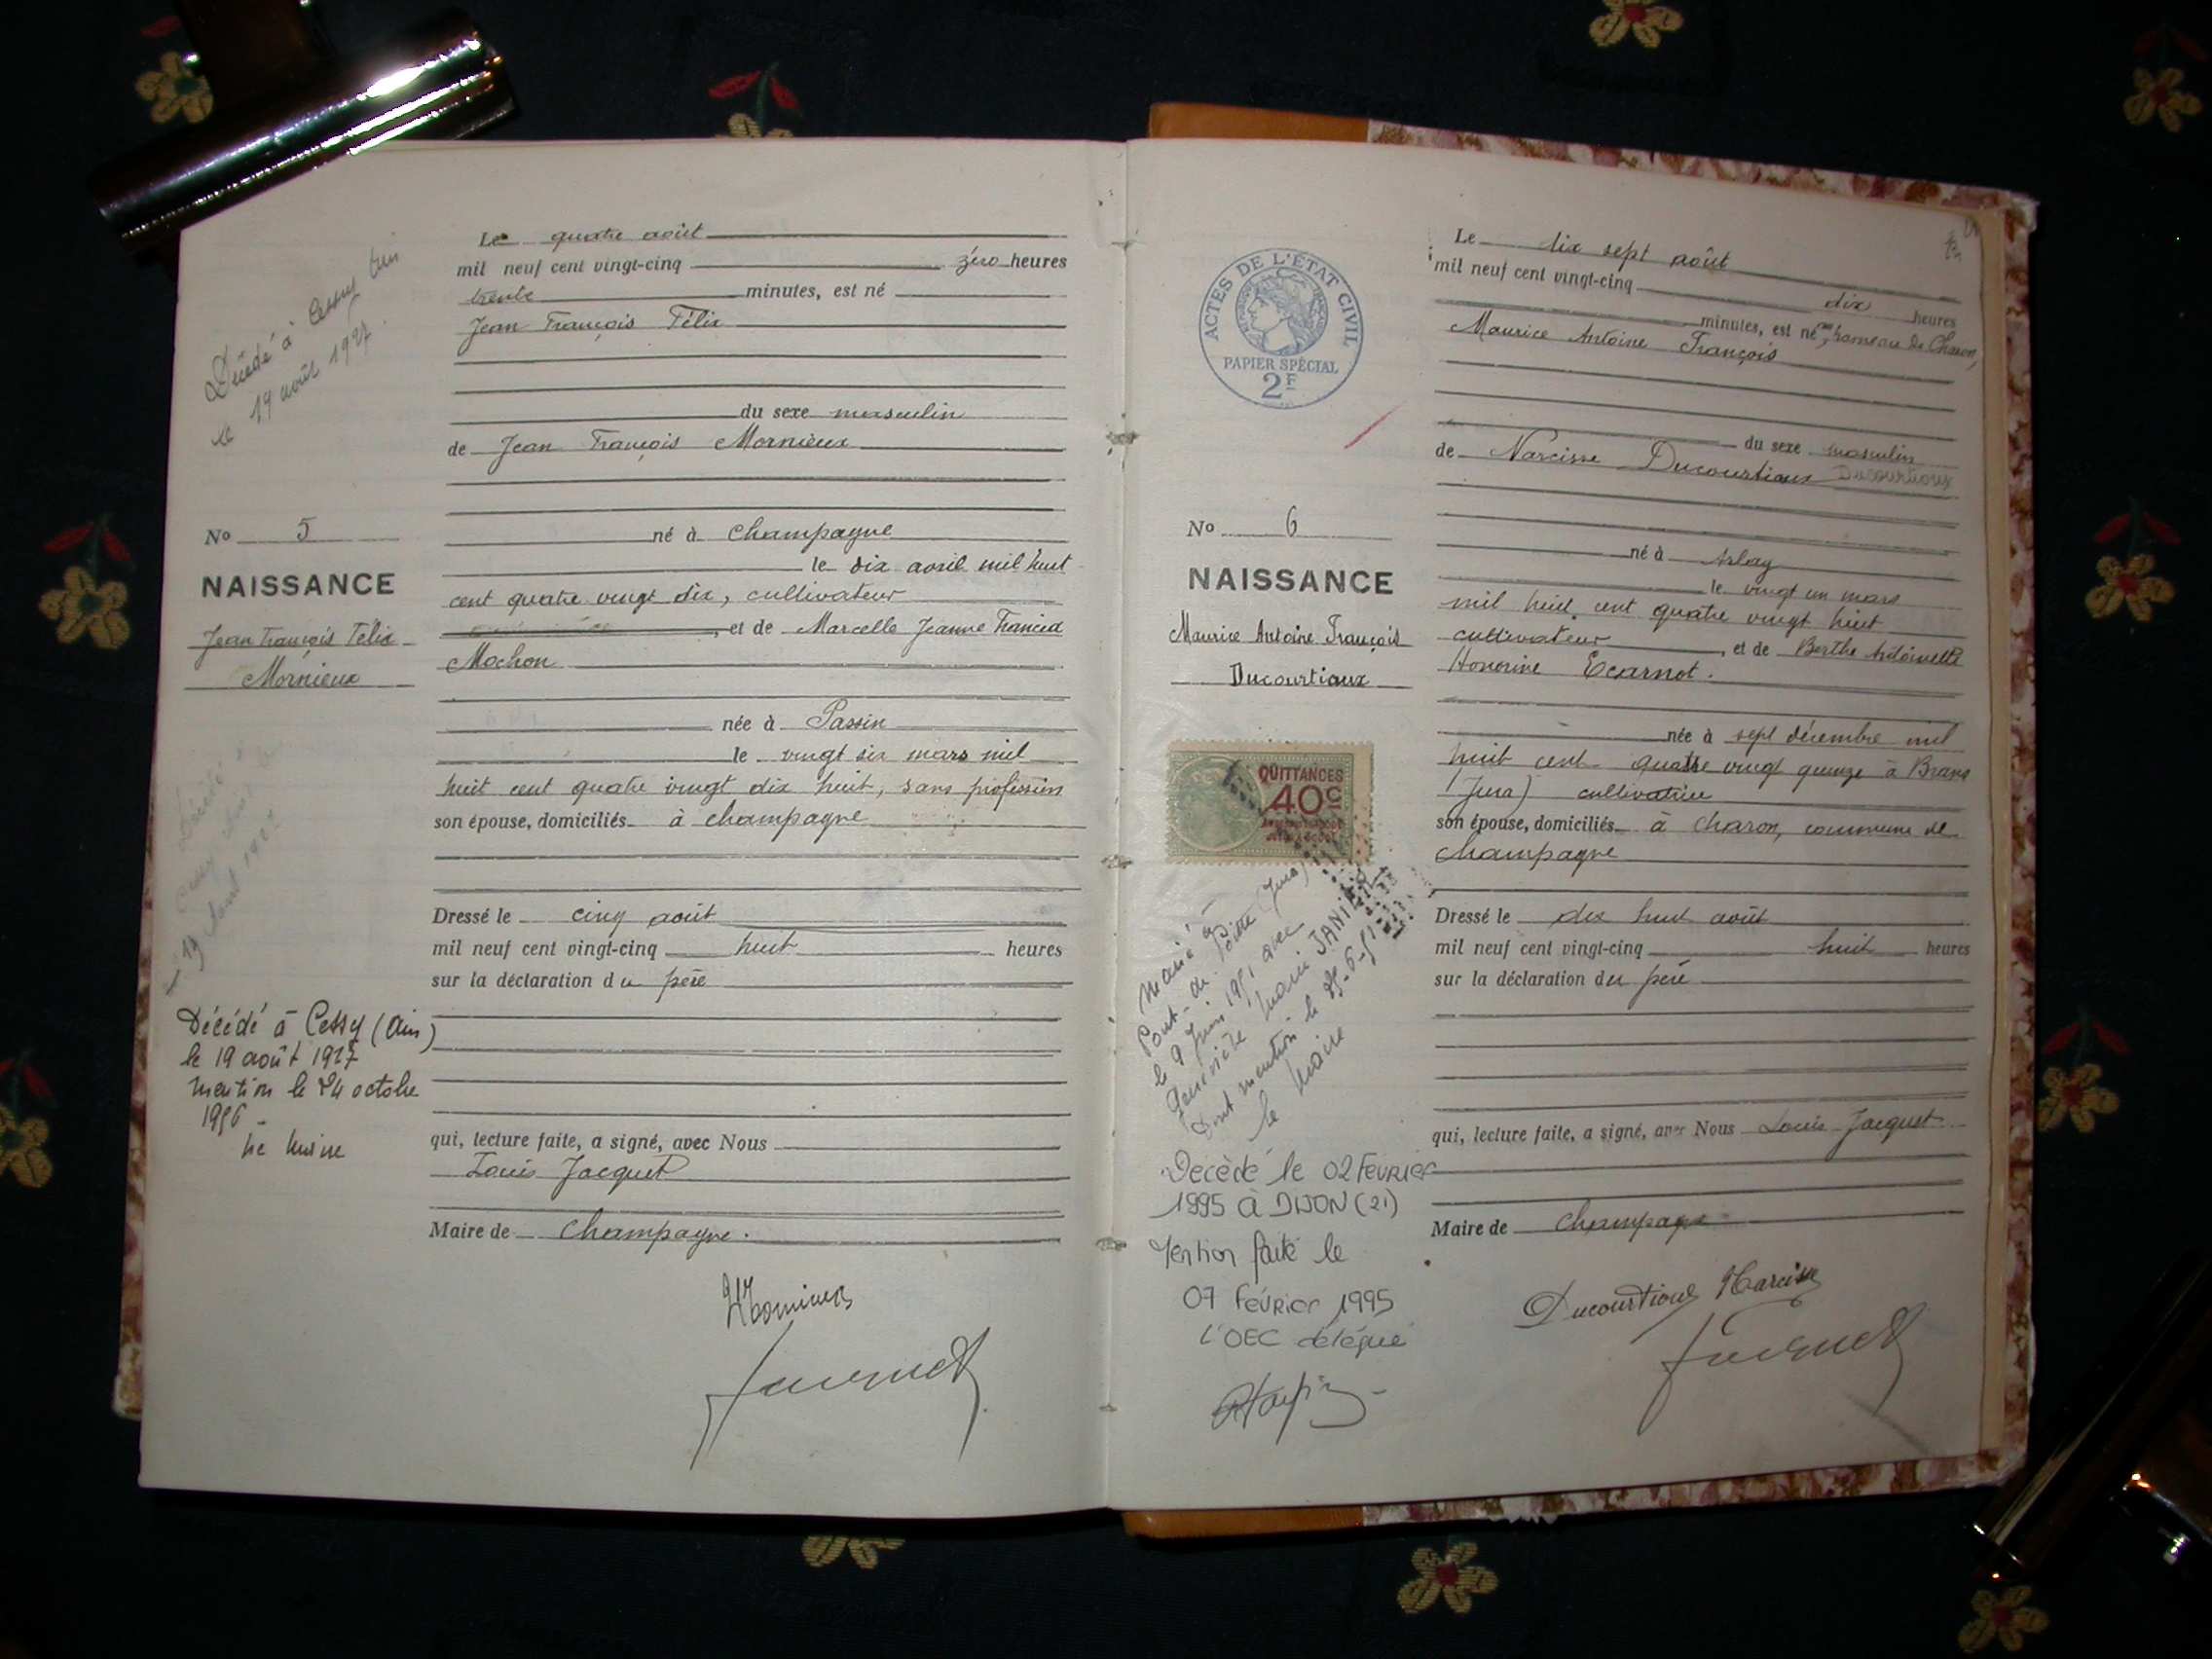 Décédé à Cessy Ain
le 19 août 1927
No 5
NAISSANCE
Jean François Félix
Mornieux
Décédé à Cessy (Ain)
le 19 août 1927
mention le 24 octobre
Le Maire
Le quatre août
mil neuf cent vingt-cinq zéro heures
trente minutes, est né
Jean François Félix
du sexe masculin
de Jean François Mornieux
né à Champagne
le dix avril mil huit
cent quatre vingt dix, cultivateur
, et de Marcelle Jeanne Francia
Mochon
née à Passin
le vingt six mars mil
huit cent quatre vingt dix huit, sans profession
son épouse, domiciliés à Champagne
Dressé le cinq août
mil neuf cent vingt-cinq huit heures
sur la déclaration du père
qui, lecture faite, a signé, avec Nous
Louis Jacquet
Maire de Champagne.
ACTES DE L'ÉTAT CIVIL
PAPIER SPÉCIAL
2F
No 6
NAISSANCE
Maurice Antoine François
Ducourtiaux
QUITTANCES
40c
Marié à
Pont-du-Poitte (Jura)
le 9 Juin 1951 avec
Geneviève Marie JANIER
Dont mention le
le Maire
Décédé le 02 FÉVRIER
1995 à DIJON (21)
Mention faite le
07 Février 1995
L'OEC délégué
Le dix sept août
mil neuf cent vingt-cinq dix heures
minutes, est né au hameau de Charon,
Maurice Antoine François
du sexe masculin
de Narcisse Ducourtiaux Ducourtioux
né à Arlay
le vingt un mars
mil huit cent quatre vingt huit
cultivateur, et de Berthe Antoinette
Honorine Ecarnot.
née à sept décembre mil
huit cent quatre vingt quinze à Brans
(Jura) cultivatrice
son épouse, domiciliés à Charon, commune de
Champagne
Dressé le dix huit août
mil neuf cent vingt-cinq huit heures
sur la déclaration du père
qui, lecture faite, a signé, avec Nous Louis Jacquet
Maire de Champagne
Ducourtioux Narcisse